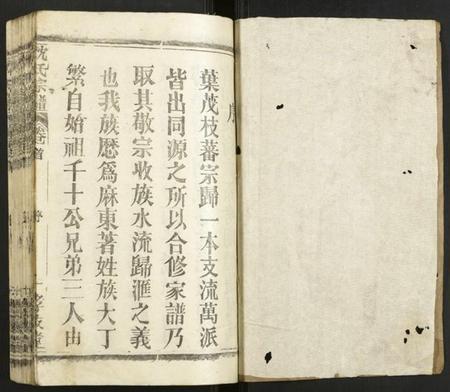 序
葉茂枝蕃宗歸一本支流萬派
皆出同源之所以合修家譜乃
取其敬宗收族水流歸滙之義
也我族歷爲麻東著姓族大丁
繁自始祖千十公兄弟三人由
氏宗譜
卷首
序